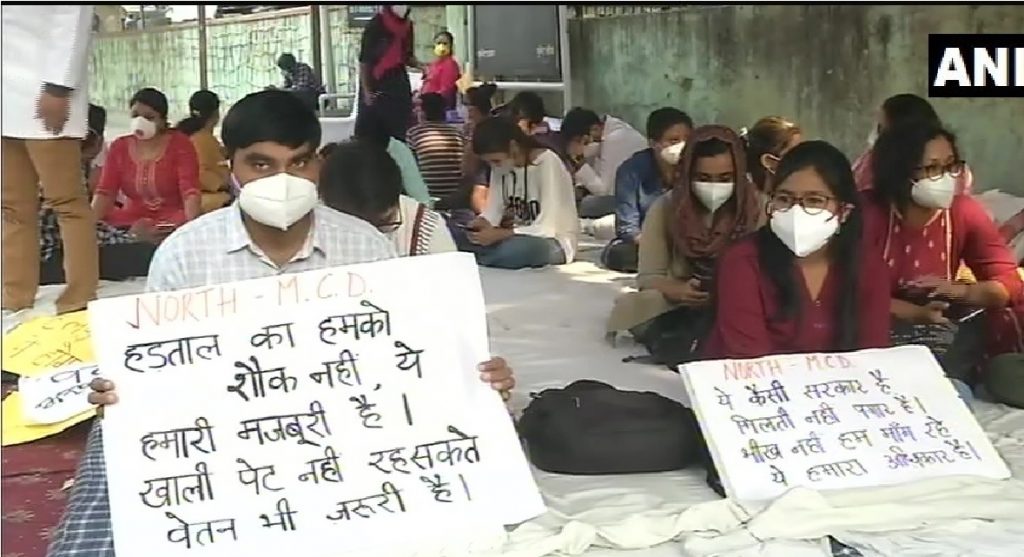 ANI
NORTH - M.C.D.
हडताल का हमको
शौक नहीं, ये
हमारी मजबूरी है।
खाली पेट नहीं रहसकते
वेतन भी जरूरी है।
NORTH - M.C.D.
ये कैसी सरकार है
मिलती नहीं पगार है।
भीख नहीं हम माँग रहे
ये हमारा अधिकार है।